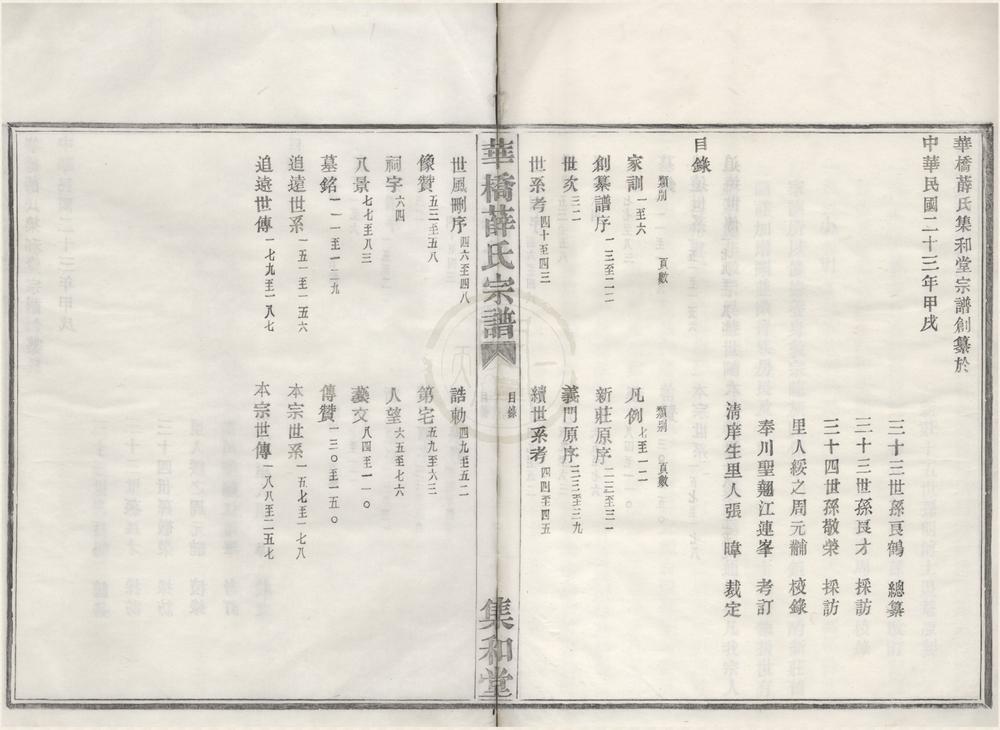 華橋薛氏集和堂宗譜創纂於
中華民國二十三年甲戌
三十三世孫良鶴 總纂
三十三世孫良才 採訪
三十四世孫敬榮 採訪
里人綏之周元黼 校錄
奉川聖翹江連峯 考訂
清庠生里人張暐 裁定
目錄
類別 頁數 類別 頁數
家訓 一至六 凡例 七至一二
創纂譜序 一三至二一 新莊原序 二二至三一
世次 三二 義門原序 三三至三九
世系考 四十至四三 續世系考 四四至四五
華橋薛氏宗譜 目錄 集和堂
世風剛序 四六至四八 誥勅 四九至五二
像贊 五三至五八 第宅 五九至六三
祠宇 六四 人望 六五至七六
八景 七七至八三 藝文 八四至一一〇
墓銘 一一一至一二九 傳贊 一三〇至一五〇
追遠世系 一五一至一五六 本宗世系 一五七至一七八
追遠世傳 一七九至一八七 本宗世傳 一八八至二五七